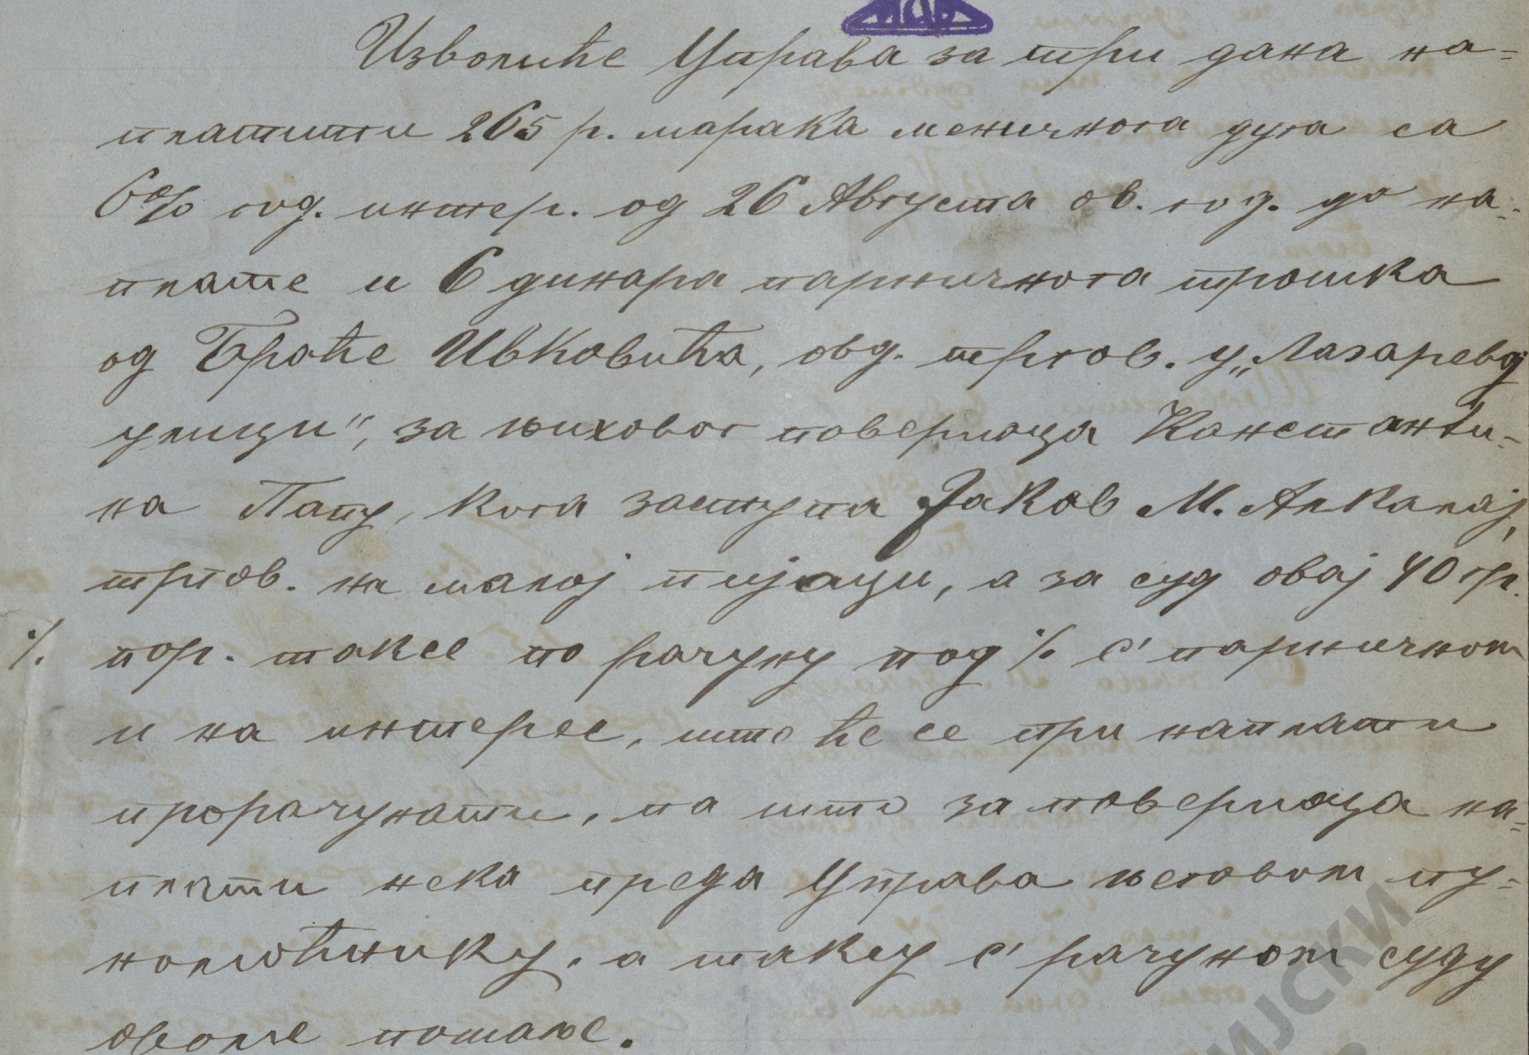 Изволиће Управа за три дана на=
платити 265 р. марака меничнога дуга са
6% год. интер. од 26 Августа ов. год. до на=
плате и 6 динара парничнога трошка
од Браће Ивковића, овд. тргов. у „Лазаревој
улици", за њиховог повериоца Константи-
на Папу, кога заступа Јаков М. Алкалај,
тргов. на малој пијаци, а за суд овај 40 гр.
·/. пор. таксе по рачуну под ·/. с' парничном
и на интерес, што ће се при наплати
прорачунати, па што за повериоца на=
плати нека преда Управа његовом пу=
номоћнику, а таксу с' рачуном суду
овоме пошаље.
ИЈСКИ